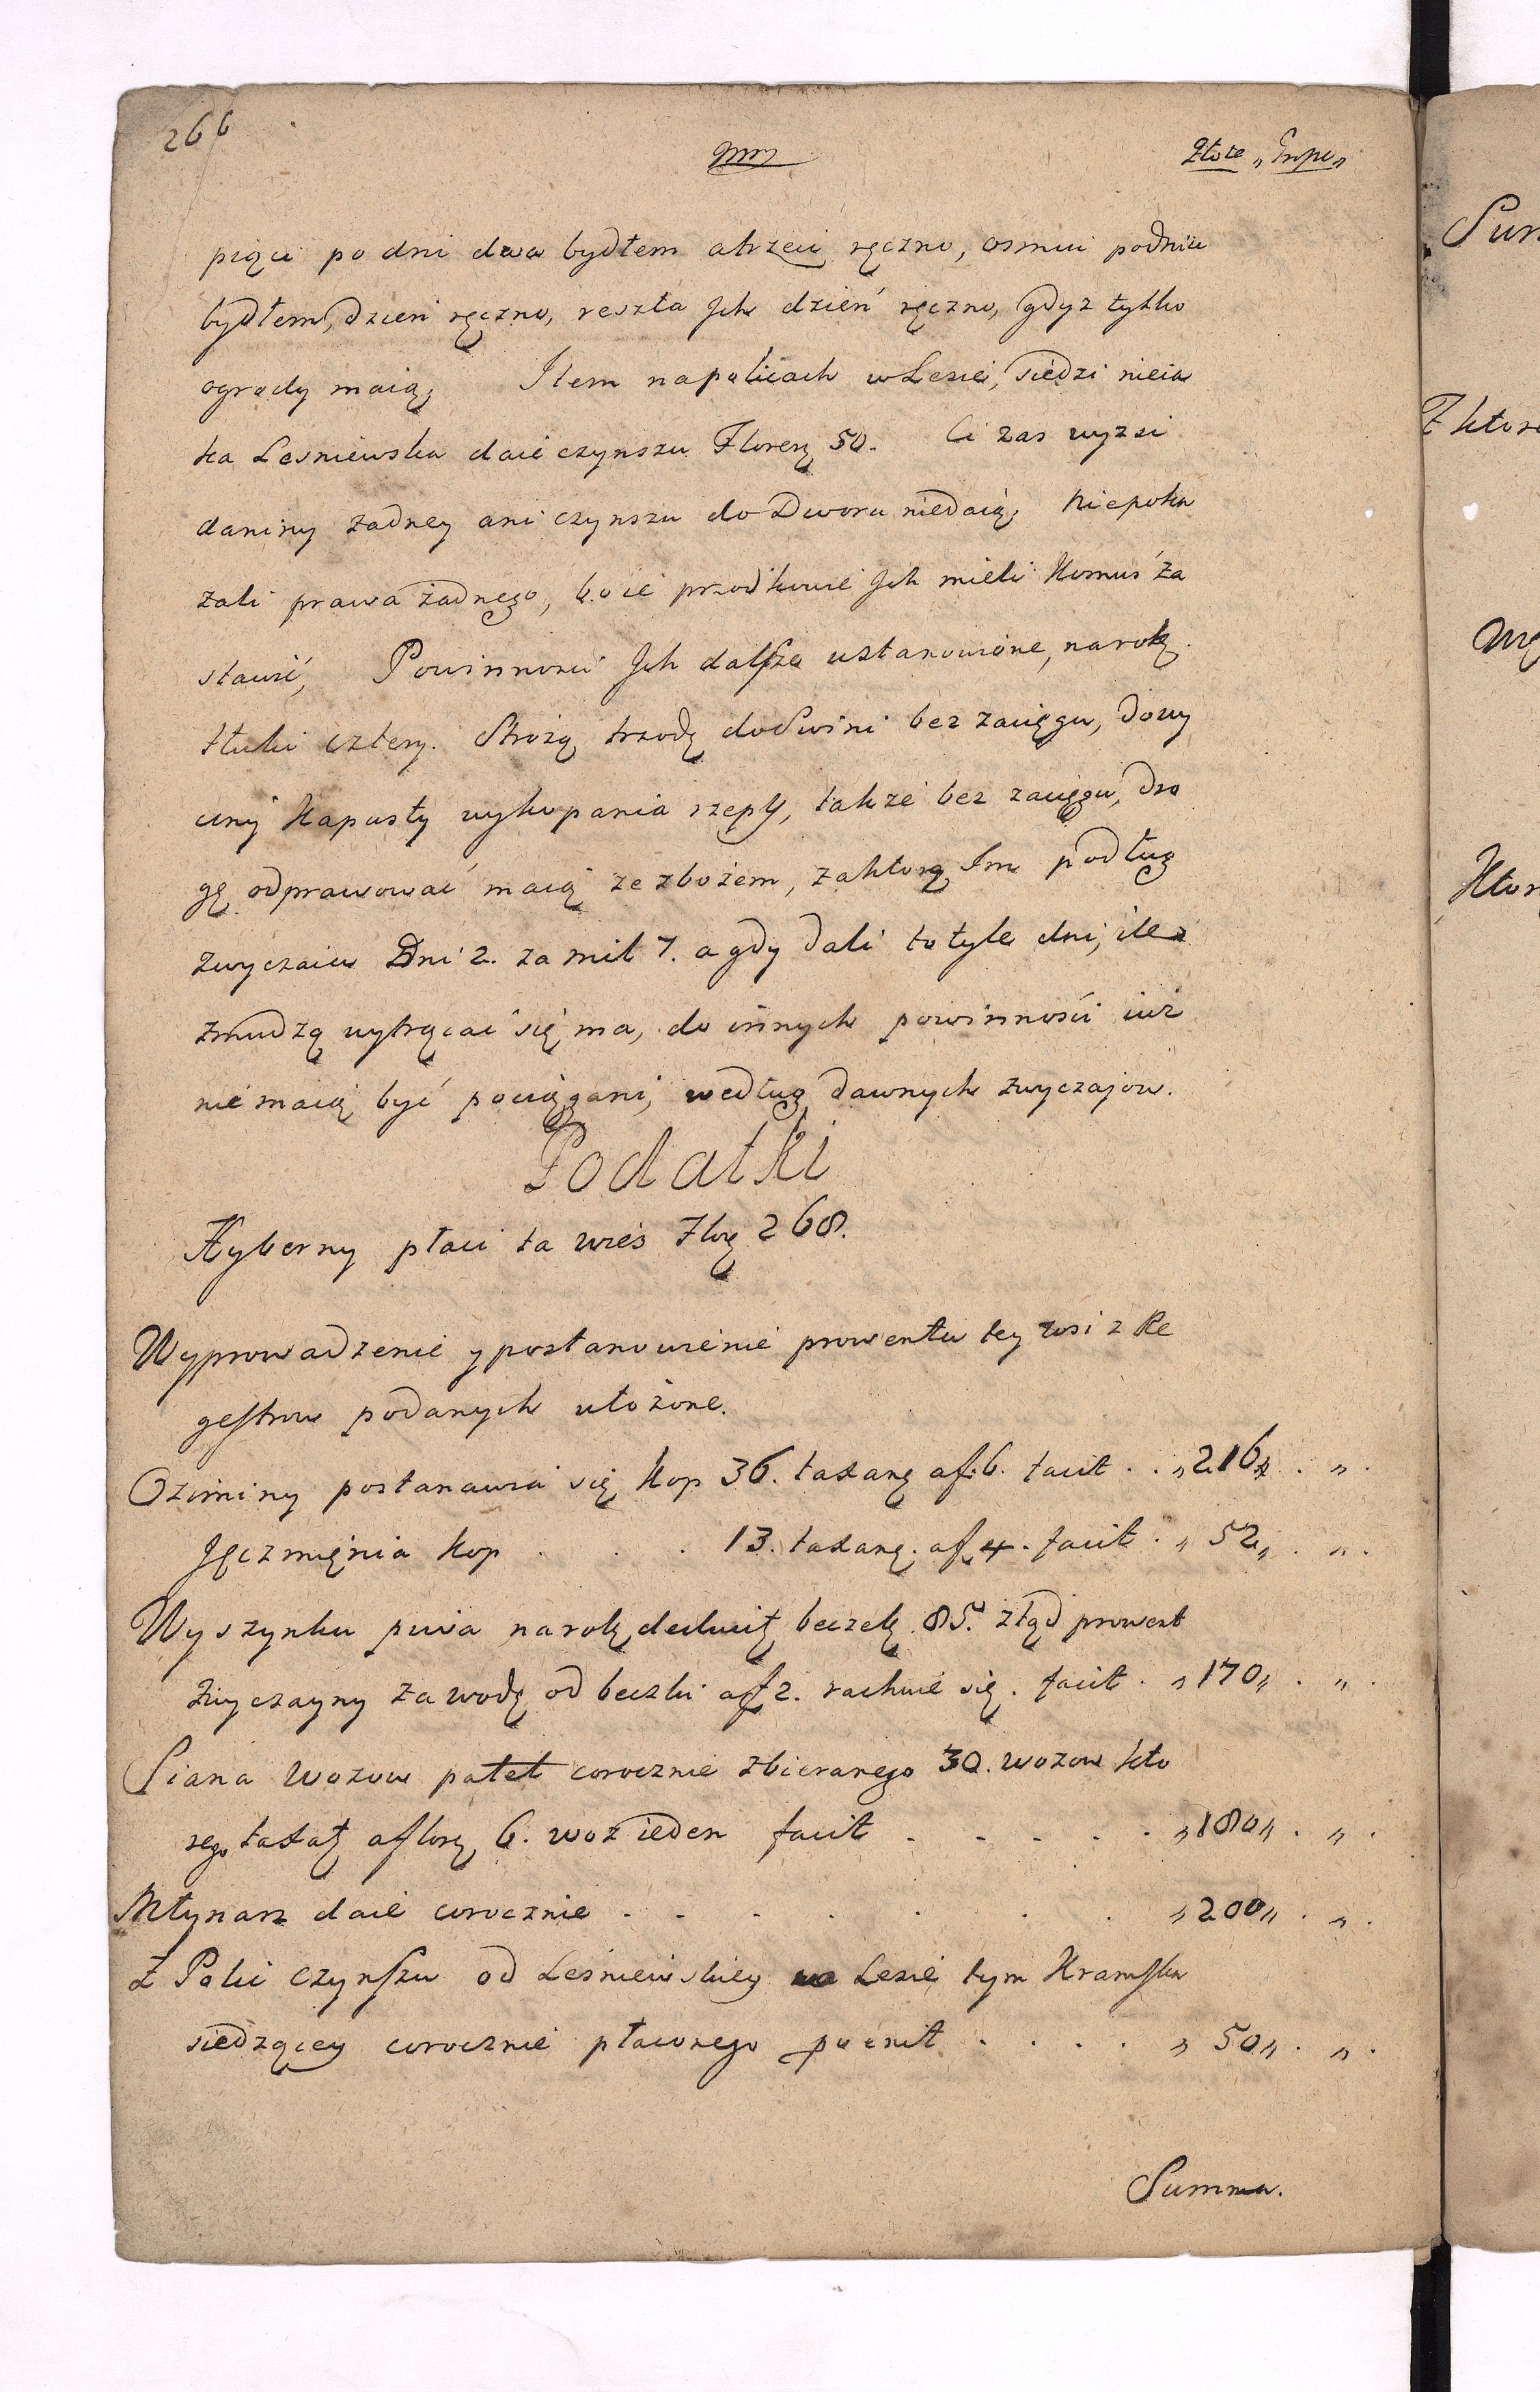 266
Złote „ Grosze „
pięciu po dni dwa bydłem atrzeci ręczno, osmiu podniu
bydłem, dzień ręczno, reszta Jch dzień ręczno, gdyz tylko
ogrody maią, Item napolicach w Lesie, siedzi nieia
ka Lesniewska daie czynszu Floren 50. Ci zas wyzsi
daniny zadney ani czynszu do Dworu niedaią, Niepoka
zali prawa żadnego, boie przodkowie Jch mieli Komuś za
stawić, Powinnosci Jch dalsze ustanowione, narok
tłuki cztery. Stróżą trzodę do Swini bez zacięgu, dowy
ciny Kapusty wykopania rzepy, także bez zacięgu, dro
gę odprawować maią ze zbożem, zaktorą Im podług
zwyczaiu Dni 2. za mil 7. a gdy dali to tyle dni, ile
zmudzą wytrącać się ma, do innych powinności iuż
nie maią być pociągani, według dawnych zwyczajow.
Podatki
Hyberny płaci ta wieś Flor 268.
Wyprowadzenie y postanowienie prowentu tey wsi z Re
gestrow podanych ułożone.
Oziminy postanawia się Kop 36. taxane af. 6. facit . . „ 216 „ . „ .
Jęczmięnia Kop . . . 13. taxane. af. 4. facit . „ 52 „ . „ .
Wyszynku piwa narok deducit beczek 85. ztąd prowent
zwyczayny za wodę od beczki af 2. rachuie się. facit . „ 170 „ . „ .
Siana Wozow patet corocznie zbieranego 30. wozow kto
rego taxat aflore 6. woz ieden facit . . . . . „ 180 „ . „ .
Młynarz daie corocznie . . . . . . . „ 200 „ . „ .
Z Polic czynszu od Leśniewskiey w Lesie tym Kramska
siedzącey corocznie płaconego poenit . . . . „ 50 „ . „ .
Summa.